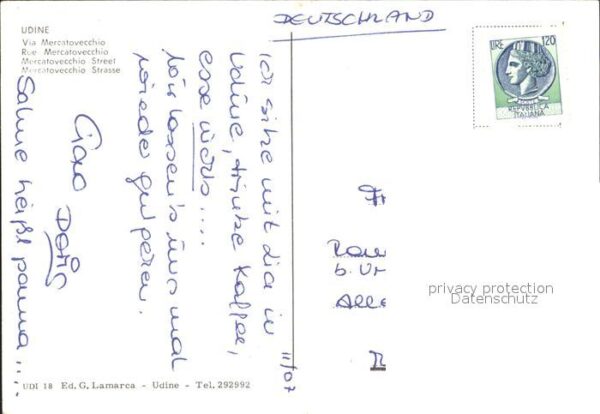 UDINE
Via Mercatovecchio
Rue Mercatovecchio
Mercatovecchio Street
Mercatovecchio Strasse
DEUTSCHLAND
LIRE 120
REPUBBLICA
ITALIANA
Ich sitze mit dia in
Udine, trinke Kaffee,
esse
wir lassen's uns mal
wieder gut
Ciao
Doris
Sahne heißt panna....
11/07
b.
Alle
privacy protection
Datenschutz
UDI 18 Ed. G. Lamarca - Udine - Tel. 292992